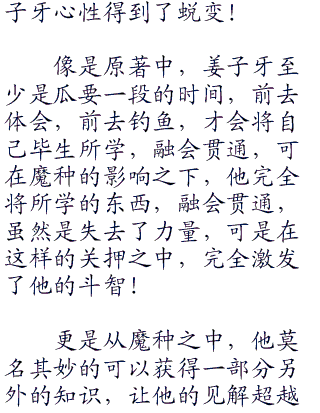 子牙心性得到了蜕变！
像是原著中，姜子牙至
少是瓜要一段的时间，前去
体会，前去钓鱼，才会将自
己毕生所学，融会贯通，可
在魔种的影响之下，他完全
将所学的东西，融会贯通，
虽然是失去了力量，可是在
这样的关押之中，完全激发
了他的斗智！
更是从魔种之中，他莫
名其妙的可以获得一部分另
外的知识，让他的见解超越